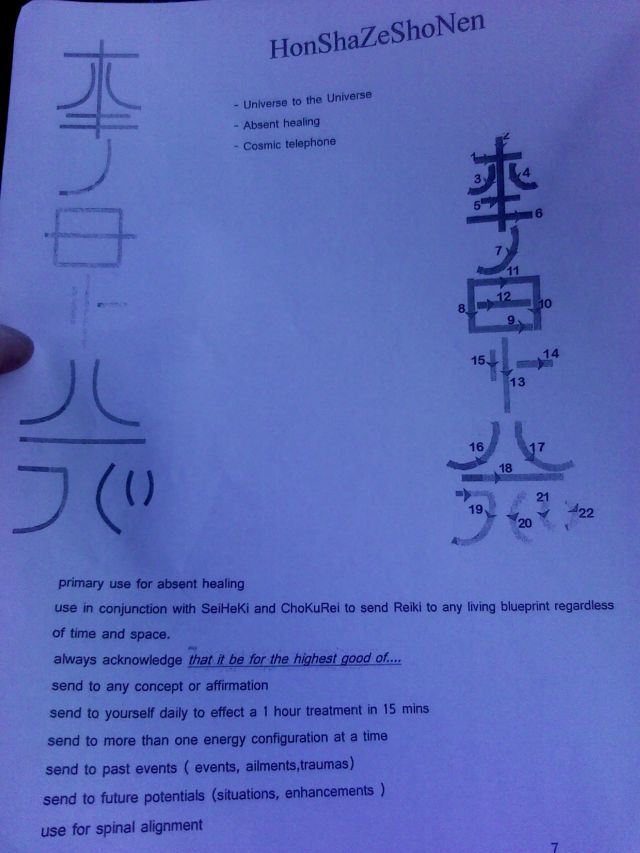 HonShaZeShoNen
- Universe to the Universe
- Absent healing
- Cosmic telephone
2
1
3
4
5
6
7
11
8
12
10
9
15
14
13
16
17
18
19
20
21
22
primary use for absent healing
use in conjunction with SeiHeKi and ChoKuRei to send Reiki to any living blueprint regardless
of time and space.
always acknowledge that it be for the highest good of....
send to any concept or affirmation
send to yourself daily to effect a 1 hour treatment in 15 mins
send to more than one energy configuration at a time
send to past events ( events, ailments,traumas)
send to future potentials (situations, enhancements )
use for spinal alignment
7